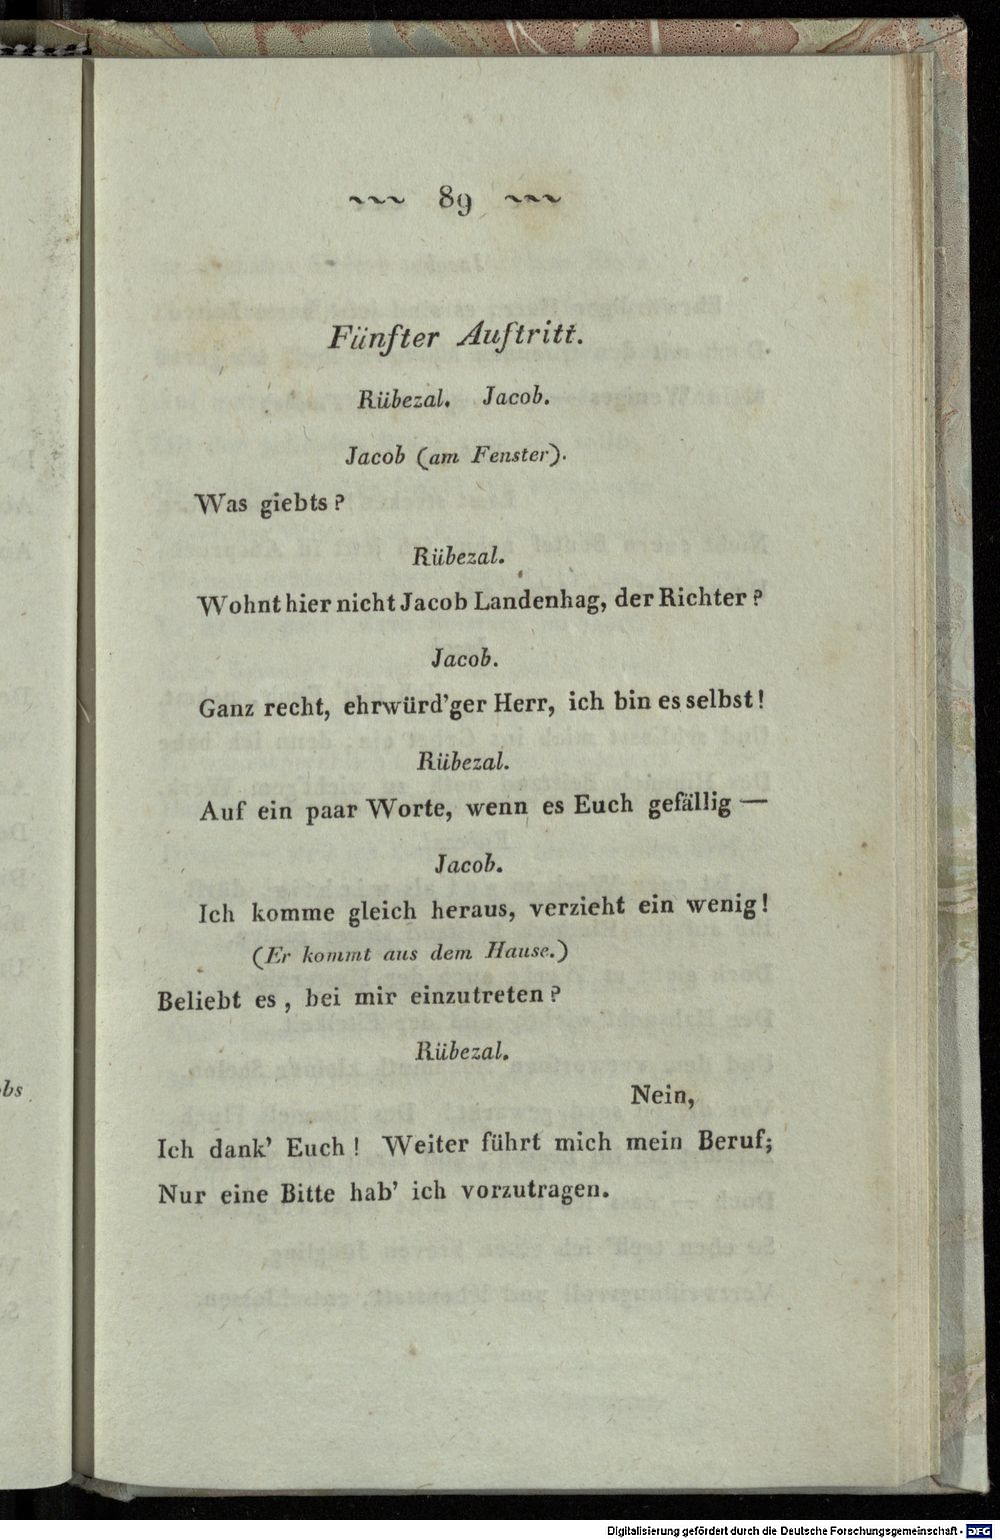 ~~~ 89 ~~~
Fünfter Auftritt.
Rübezal. Jacob.
Jacob (am Fenster).
Was giebts?
Rübezal.
Wohnt hier nicht Jacob Landenhag, der Richter?
Jacob.
Ganz recht, ehrwürd'ger Herr, ich bin es selbst!
Rübezal.
Auf ein paar Worte, wenn es Euch gefällig —
Jacob.
Ich komme gleich heraus, verzieht ein wenig!
(Er kommt aus dem Hause.)
Beliebt es, bei mir einzutreten?
Rübezal.
Nein,
Ich dank' Euch! Weiter führt mich mein Beruf;
Nur eine Bitte hab' ich vorzutragen.
obs
Digitalisierung gefördert durch die Deutsche Forschungsgemeinschaft - DFG